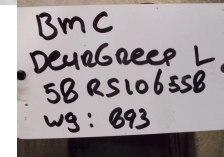 BMC
DEURGREEP L
5B RS106558
WG: B93